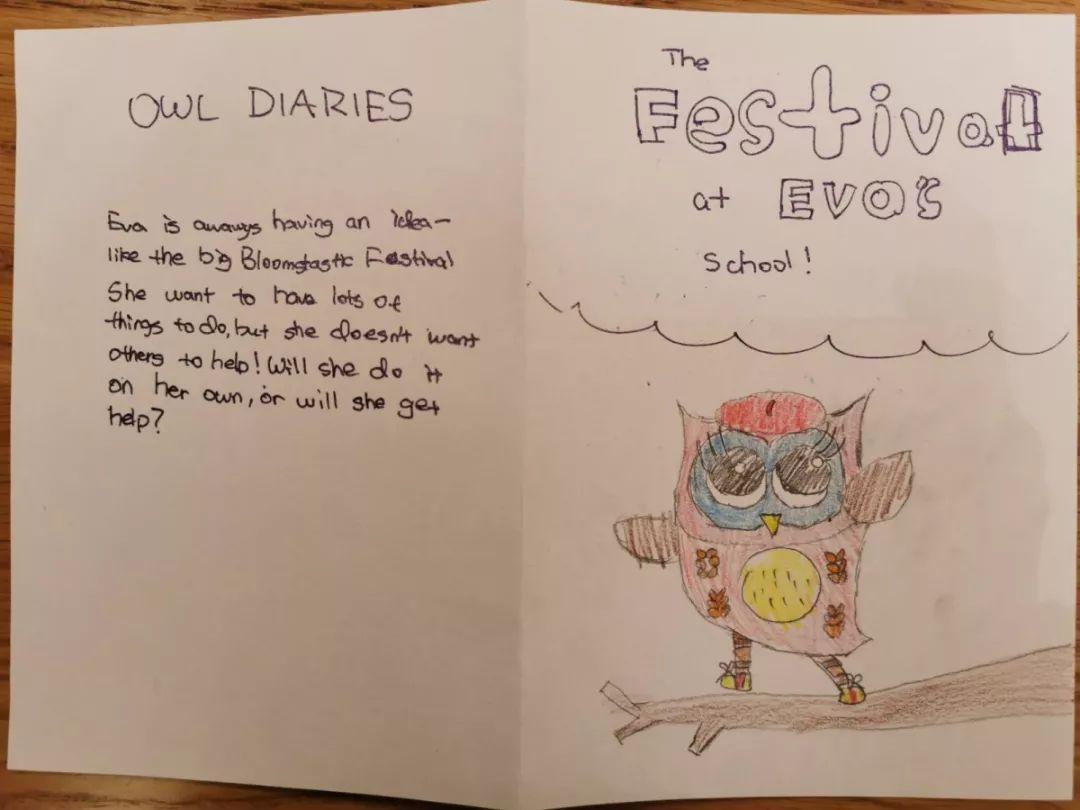 OWL DIARIES
Eva is aways having an idea—
like the big Bloomtastic Festival
She want to have lots of
things to do, but she doesn't want
others to help! Will she do it
on her own, or will she get
help?
The
Festival
at EVA's
School!